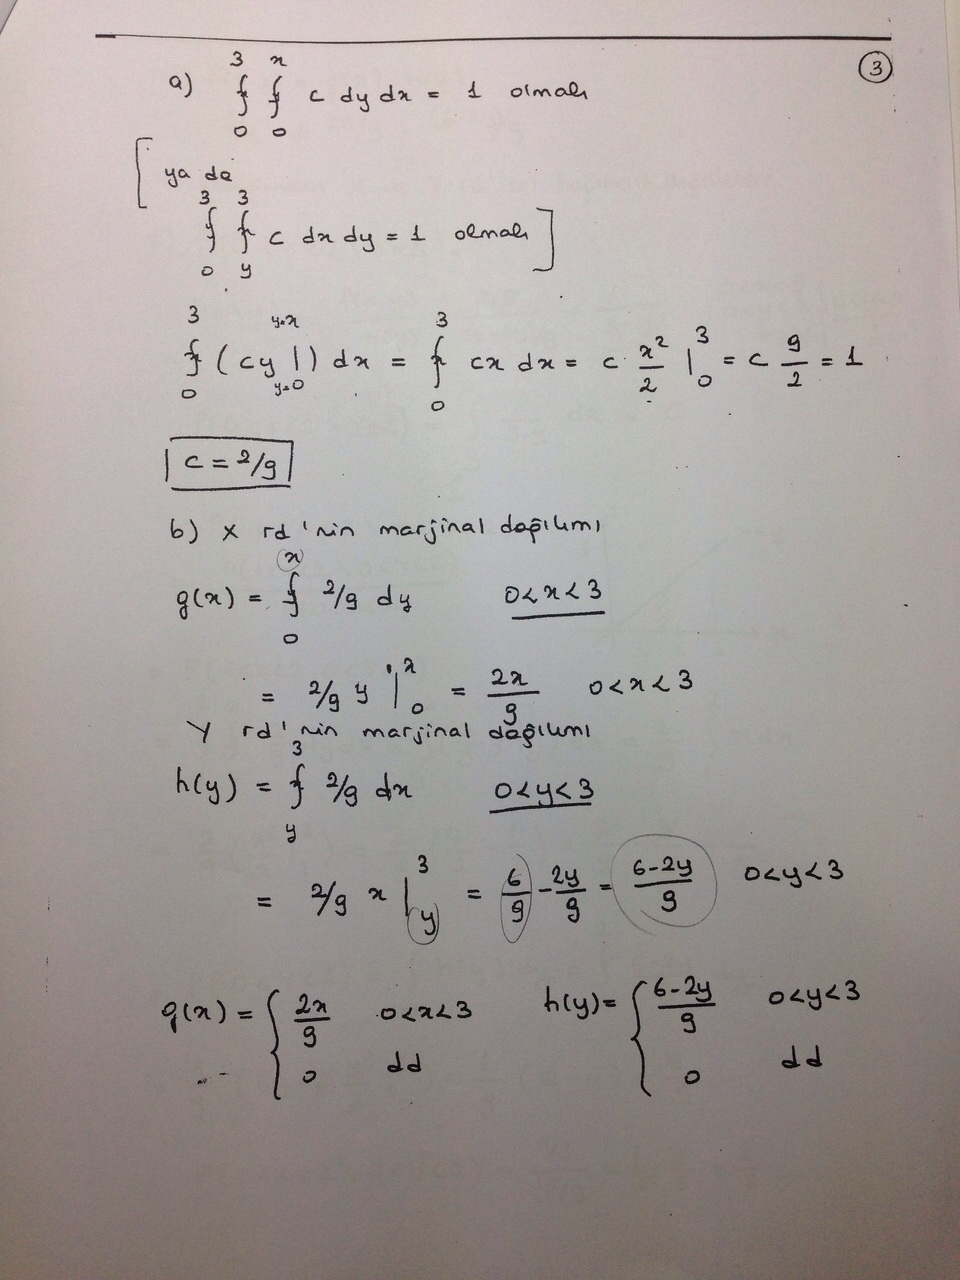 3
a) ∫₀³ ∫₀ˣ c dy dx = 1 olmalı
[ ya da
∫₀³ ∫ᵧ³ c dx dy = 1 olmalı ]
∫₀³ ( cy |_{y=0}^{y=x} ) dx = ∫₀³ cx dx = c · x²/2 |₀³ = c 9/2 = 1
c = 2/9
b) X rd'nin marjinal dağılımı
g(x) = ∫₀ˣ 2/9 dy 0<x<3
= 2/9 y |₀ˣ = 2x/9 0<x<3
Y rd'nin marjinal dağılımı
h(y) = ∫ᵧ³ 2/9 dx 0<y<3
= 2/9 x |ᵧ³ = 6/9 - 2y/9 = (6-2y)/9 0<y<3
g(x) = { 2x/9 0<x<3 h(y) = { (6-2y)/9 0<y<3
0 dd 0 dd